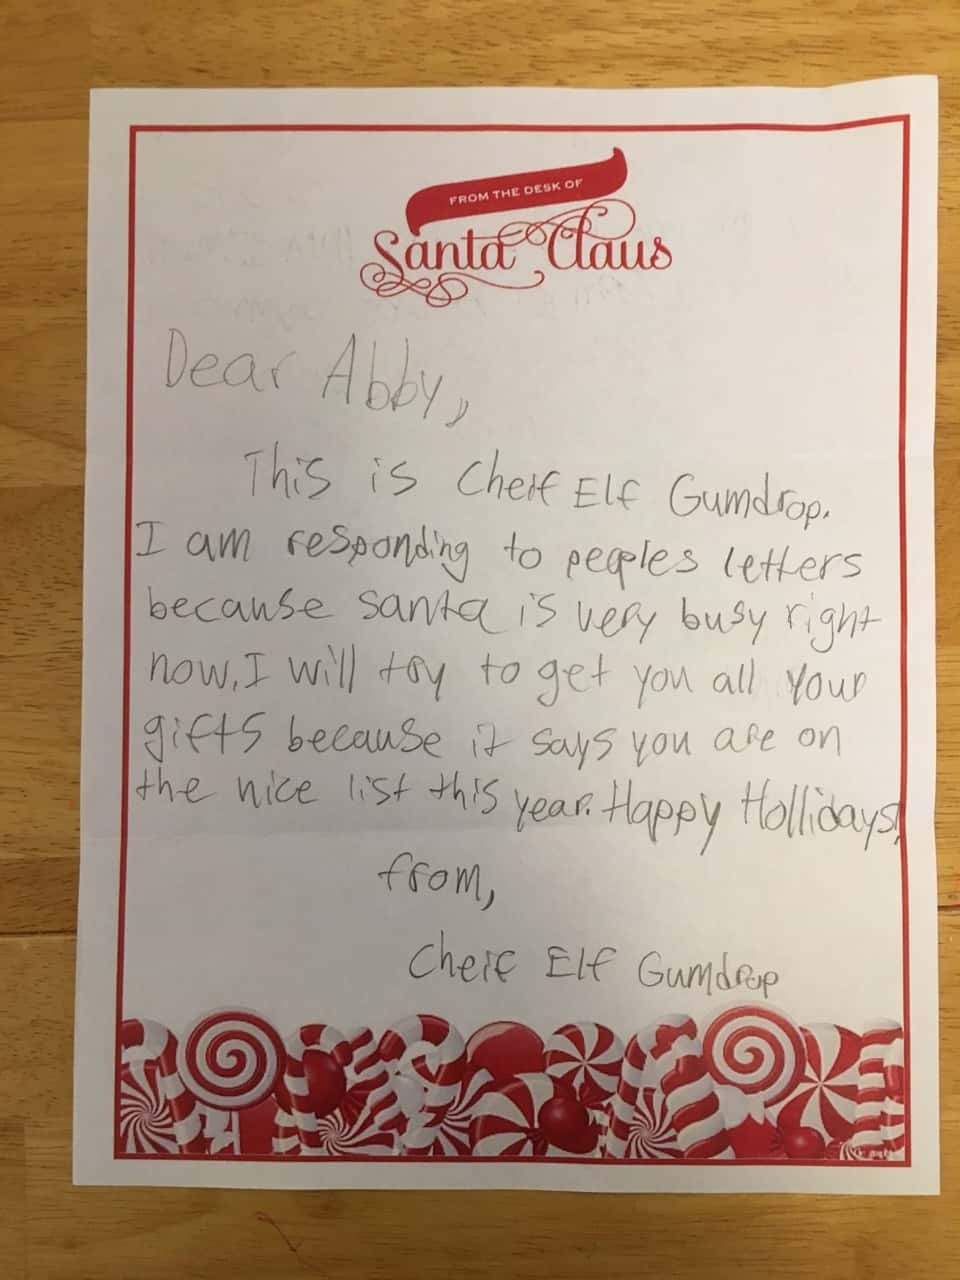 FROM THE DESK OF
Santa Claus
Dear Abby,
This is Cheif Elf Gumdrop.
I am responding to peoples letters
because santa is very busy right
now. I will try to get you all your
gifts because it says you are on
the nice list this year. Happy Hollidays!
from,
Cheif Elf Gumdrop